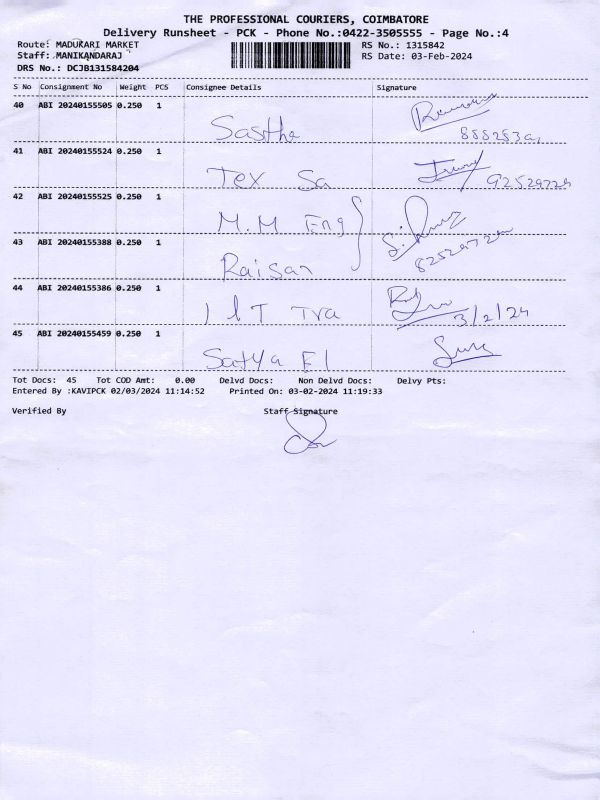 THE PROFESSIONAL COURIERS, COIMBATORE
Delivery Runsheet - PCK - Phone No.:0422-3505555 - Page No.:4
Route: MADUKARI MARKET
RS No.: 1315842
Staff: MANIKANDARAJ
RS Date: 03-Feb-2024
DRS No.: DCJB131584204
S No Consignment No Weight PCS Consignee Details Signature
40 ABI 20240155505 0.250 1
Sasthe
41 ABI 20240155524 0.250 1
Tex Sa
42 ABI 20240155525 0.250 1
M.M Eng
43 ABI 20240155388 0.250 1
Raisan
44 ABI 20240155386 0.250 1
Tra 3/2/24
45 ABI 20240155459 0.250 1
Satya El
Tot Docs: 45 Tot COD Amt: 0.00 Delvd Docs: Non Delvd Docs: Delvy Pts:
Entered By :KAVIPCK 02/03/2024 11:14:52 Printed On: 03-02-2024 11:19:33
Verified By Staff Signature